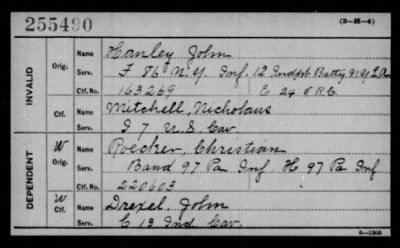 255490 (3-H-4)
INVALID
Orig. Name Hanley John
Serv. F 86 N.Y. Inf. 12 Indpt. Batty N.Y. L.A.
Ctf. No. 163269 E 24 V.R.C.
Ctf. Name Mitchell, Nicholaus
Serv. I 7 U.S. Cav.
DEPENDENT
W Orig. Name Roecker, Christian
Serv. Band 97 Pa Inf. H 97 Pa Inf.
Ctf. No. 220603
W Ctf. Name Drexel, John
Serv. C 13 Ind Cav.
6-1303